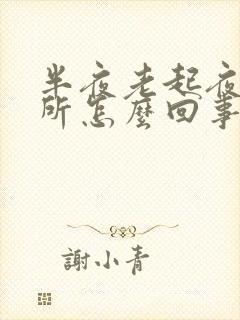 半夜老起夜
所怎麼回事
謝小青